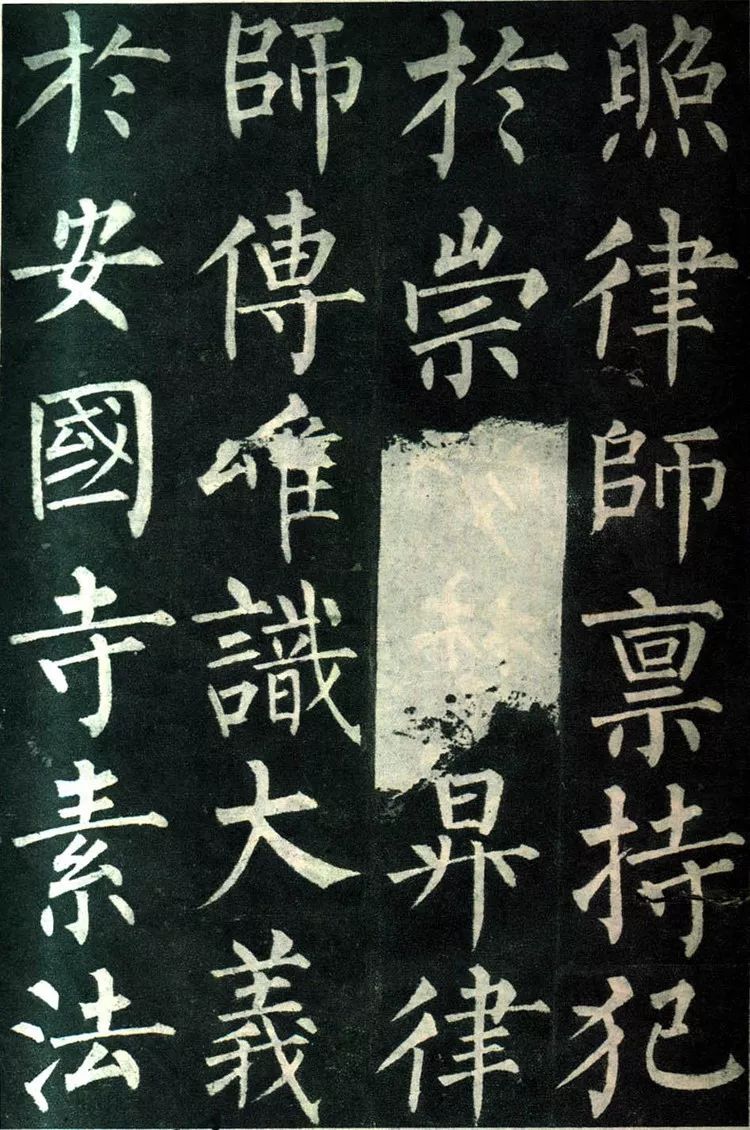 照律師禀持犯
於崇昇律
師傳唯識大義
於安國寺素法